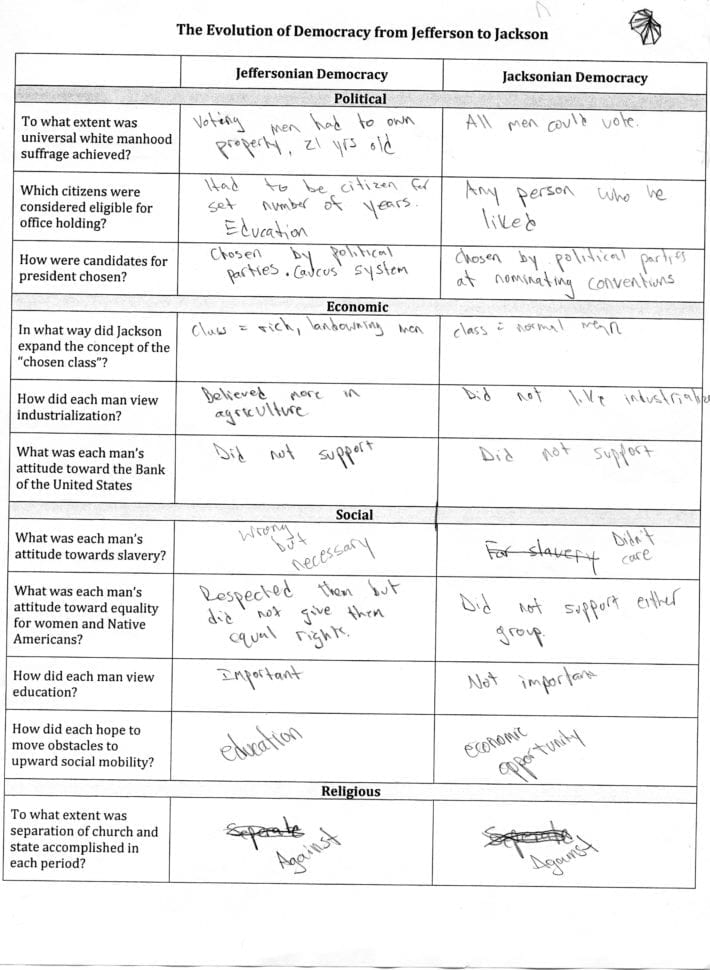 The Evolution of Democracy from Jefferson to Jackson
Jeffersonian Democracy
Jacksonian Democracy
Political
To what extent was
universal white manhood
suffrage achieved?
Voting men had to own
property, 21 yrs old
All men could vote.
Which citizens were
considered eligible for
office holding?
Had to be citizen for
set number of years.
Education
Any person who he
liked
How were candidates for
president chosen?
Chosen by political
parties. Caucus system
Chosen by political parties
at nominating conventions
Economic
In what way did Jackson
expand the concept of the
“chosen class”?
Class = rich, landowning men
class = normal men
How did each man view
industrialization?
Believed more in
agriculture
Did not like
What was each man's
attitude toward the Bank
of the United States
Did not support
Did not support
Social
What was each man's
attitude towards slavery?
Wrong
but
necessary
For slavery
Didn't
care
What was each man's
attitude toward equality
for women and Native
Americans?
Respected them but
did not give them
equal rights.
Did not support either
group.
How did each man view
education?
Important
Not important
How did each hope to
move obstacles to
upward social mobility?
education
economic
opportunity
Religious
To what extent was
separation of church and
state accomplished in
each period?
Seperate
Against
Seperate
Against